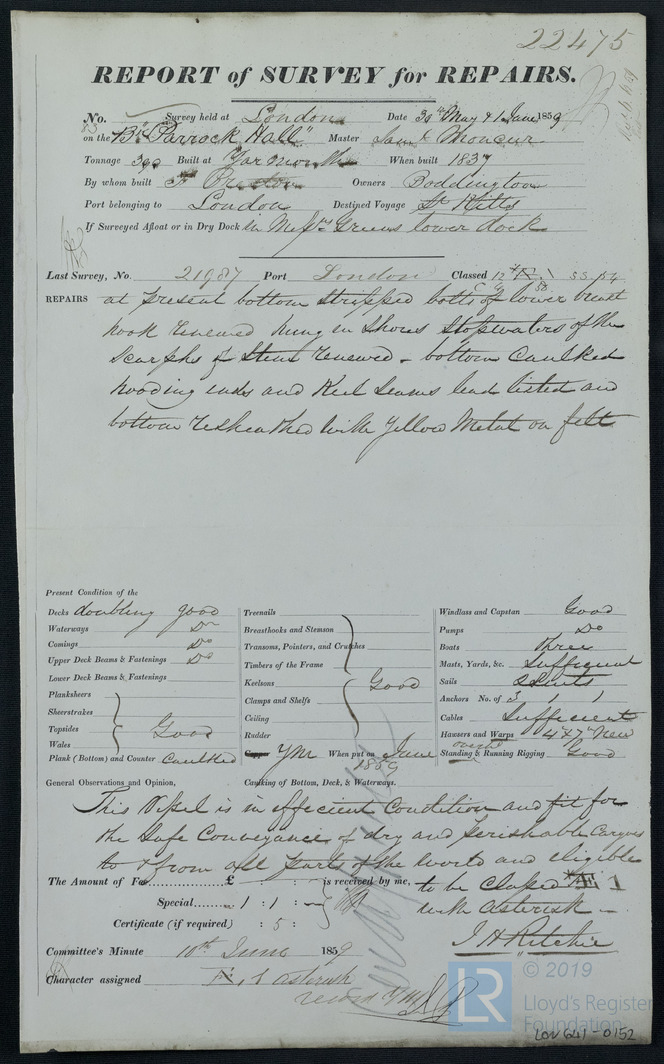 22475
REPORT of SURVEY for REPAIRS.
No. Survey held at London Date 30th May & 1 June 1859
83
on the Bk "Parrock Hall" Master Jam. Moncur
Tonnage 390 Built at Yarmouth When built 1837
By whom built F Preston Owners Boddington
Port belonging to London Destined Voyage St Kitts
If Surveyed Afloat or in Dry Dock in Messrs Greens lower dock
Last Survey, No. 21987 Port London Classed 12 1 53.54
58
REPAIRS at present bottom stripped bolts of lower breast
hook renewed hung in Shores Stopwaters of the
Scarphs of Stem renewed - bottom Caulked
hooding ends and Keel Seams lead listed and
bottom resheathed with Yellow Metal on felt
Present Condition of the
Decks doubling good
Waterways Do
Comings Do
Upper Deck Beams & Fastenings Do
Lower Deck Beams & Fastenings
Planksheers
Sheerstrakes
Topsides Good
Wales
Plank (Bottom) and Counter Caulked
Treenails
Breasthooks and Stemson
Transoms, Pointers, and Crutches
Timbers of the Frame
Keelsons Good
Clamps and Shelfs
Ceiling
Rudder
Copper YM When put on June
1859
Caulking of Bottom, Deck, & Waterways.
Windlass and Capstan Good
Pumps Do
Boats three
Masts, Yards, &c. Sufficient
Sails 2 Suits
Anchors No. of 3 1 1
Cables Sufficient
Hawsers and Warps 4 & 7 in New
Standing & Running Rigging Good
General Observations and Opinion,
This Vessel is in effecient Condition and fit for
the Safe Conveyance of dry and perishable Cargoes
to & from all parts of the world and eligible
The Amount of Fee £ : : is received by me, to be Classed Æ 1
Special 1 : 1 : with asterisk -
Certificate (if required) : 5 :
J H Ritchie
Committee's Minute 10th June 1859
Character assigned Æ, 1 asterisk
© 2019
LR
Lloyd's Register
Foundation
LON 641-0152